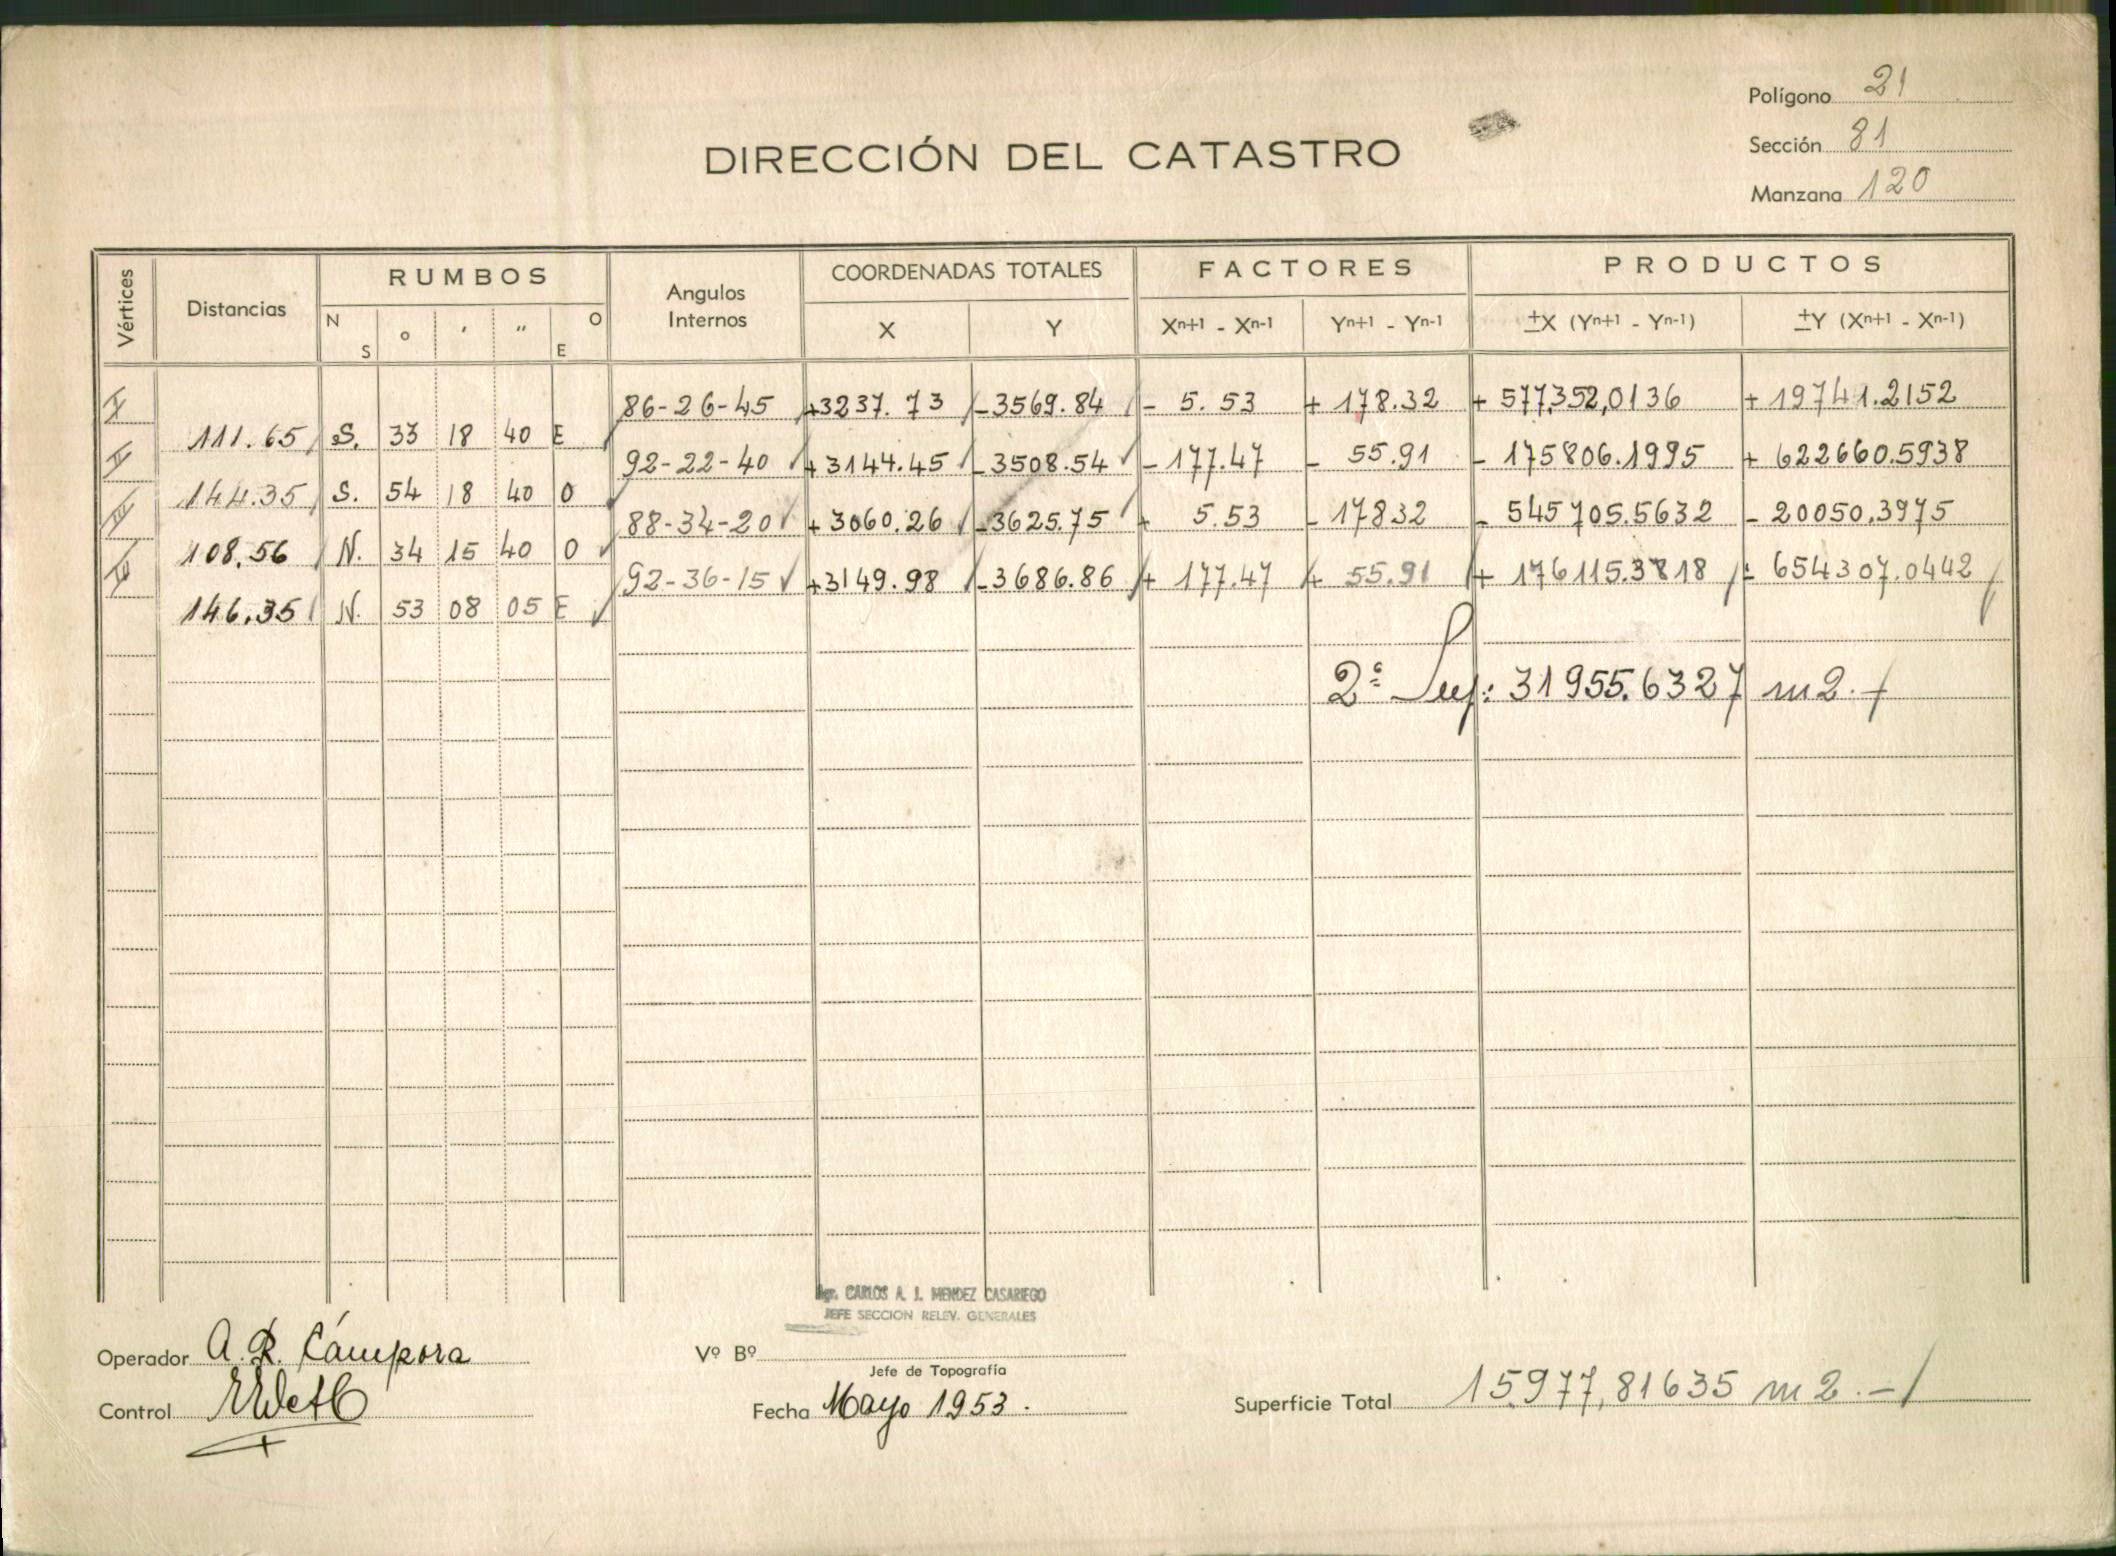 Polígono 21
Sección 81
Manzana 120
DIRECCIÓN DEL CATASTRO
Vértices Distancias RUMBOS Angulos Internos COORDENADAS TOTALES FACTORES PRODUCTOS
N S ° ' " O E X Y Xn+1 - Xn-1 Yn+1 - Yn-1 ±X (Yn+1 - Yn-1) ±Y (Xn+1 - Xn-1)
I 86-26-45 +3237.73 -3569.84 - 5.53 + 178.32 + 577,352,0136 + 19741.2152
111.65 S. 33 18 40 E
II 92-22-40 +3144.45 -3508.54 - 177.47 - 55.91 - 175806.1995 + 622660.5938
144.35 S. 54 18 40 O
III 88-34-20 +3060.26 -3625.75 + 5.53 - 17832 - 545705.5632 - 20050.3975
108.56 N. 34 15 40 O
IV 92-36-15 +3149.98 -3686.86 + 177.47 + 55.91 + 176115.3818 - 654307.0442
146.35 N. 53 08 05 E
2ª Sup: 31955.6327 m2.-
Agr. CARLOS A. J. MENDEZ CASARIEGO
JEFE SECCION RELEV. GENERALES
Operador A. R. Cámpora
Vº Bº
Jefe de Topografía
Control
Fecha Mayo 1953.
Superficie Total 15.977,81635 m2.-